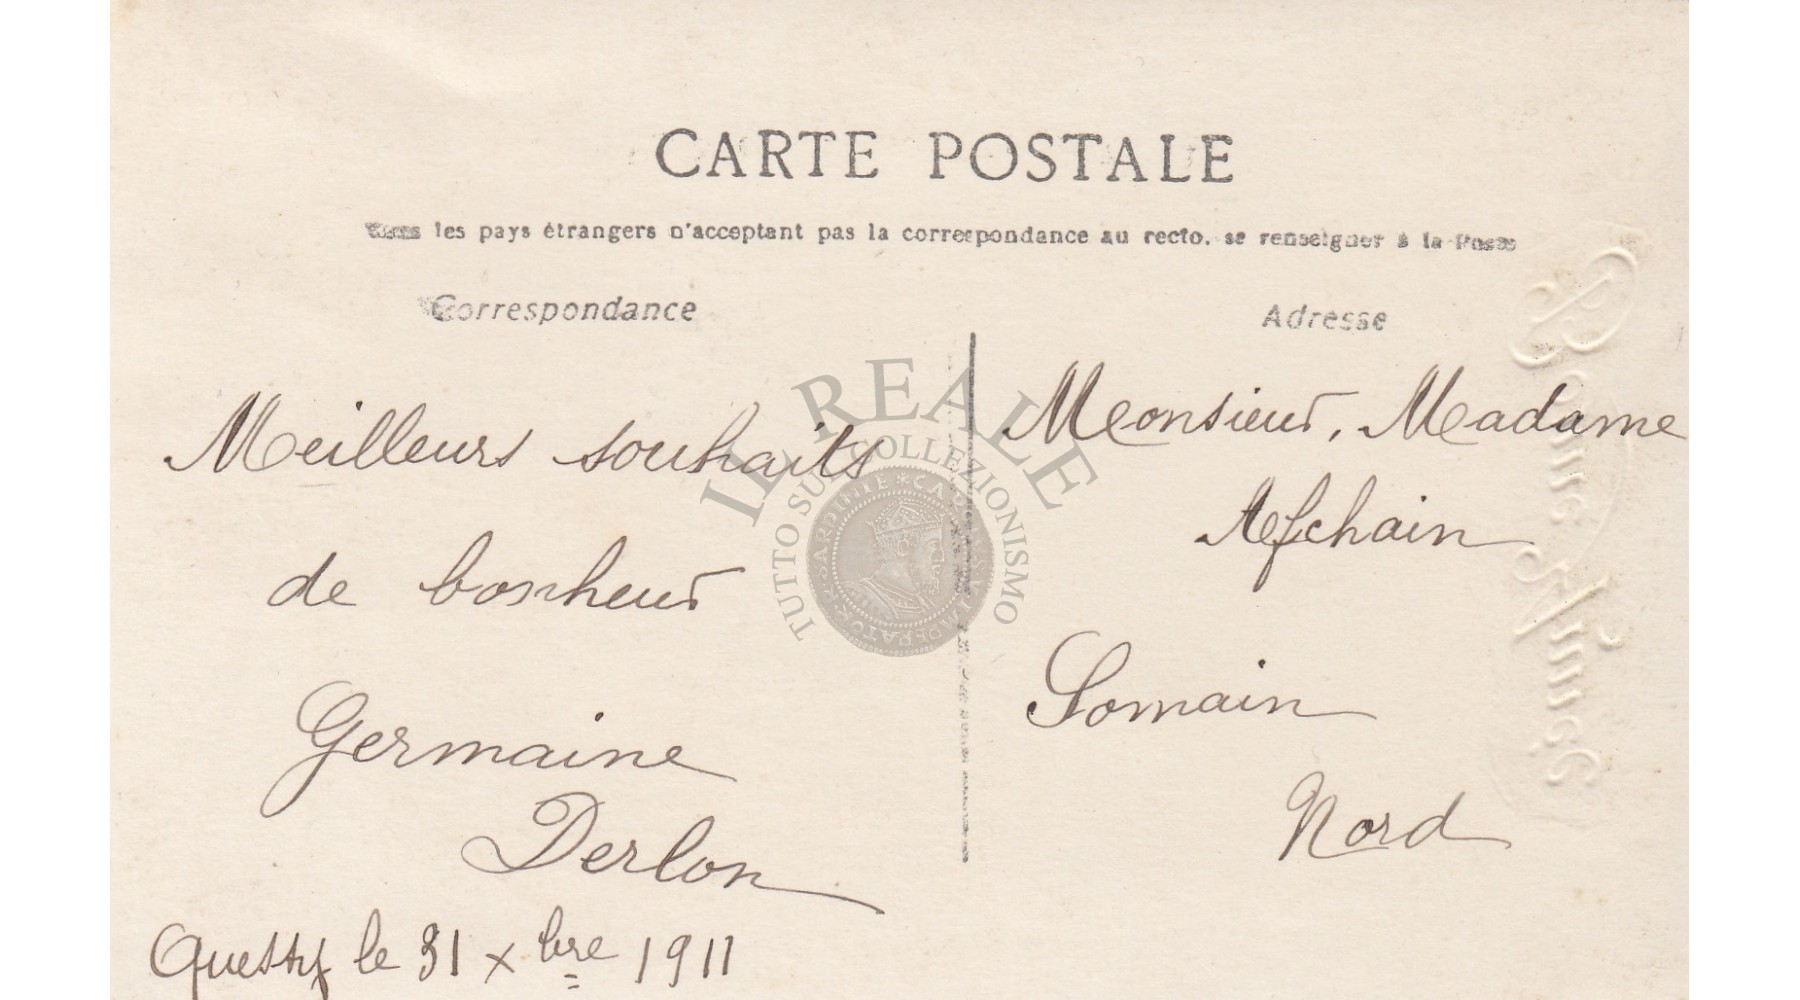 CARTE POSTALE
Tous les pays étrangers n'acceptant pas la correspondance au recto, se renseigner à la Poste
Correspondance
Adresse
Meilleurs souhaits
de bonheur
Germaine
Derlon
Quessy le 31 Xbre 1911
Monsieur, Madame
Afchain
Somain
Nord
Bonne Année
IL REALE
TUTTO SUL COLLEZIONISMO